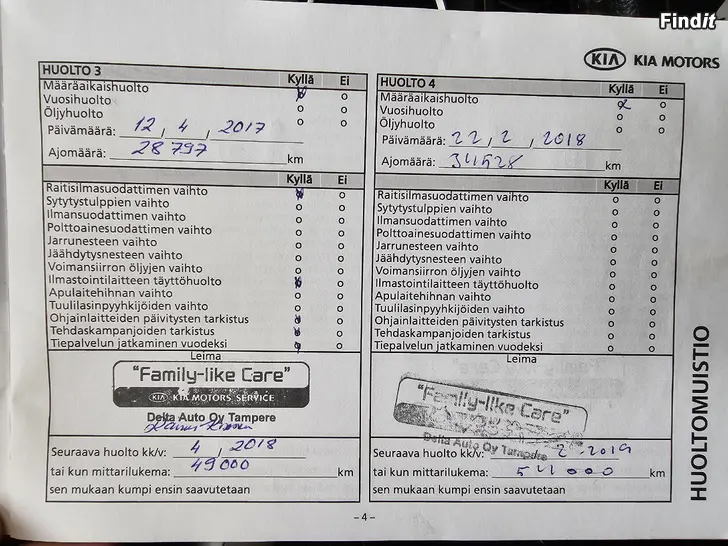 Findit
KIA KIA MOTORS
HUOLTO 3
Kyllä Ei
Määräaikaishuolto
Vuosihuolto
Öljyhuolto
Päivämäärä: 12, 4, 2017
Ajomäärä: 28 797 km
Kyllä Ei
Raitisilmasuodattimen vaihto
Sytytystulppien vaihto
Ilmansuodattimen vaihto
Polttoainesuodattimen vaihto
Jarrunesteen vaihto
Jäähdytysnesteen vaihto
Voimansiirron öljyjen vaihto
Ilmastointilaitteen täyttöhuolto
Apulaitehihnan vaihto
Tuulilasinpyyhkijöiden vaihto
Ohjainlaitteiden päivitysten tarkistus
Tehdaskampanjoiden tarkistus
Tiepalvelun jatkaminen vuodeksi
Leima
"Family-like Care"
KIA KIA MOTORS SERVICE
Delta Auto Oy Tampere
Seuraava huolto kk/v: 4, 2018
tai kun mittarilukema: 49000 km
sen mukaan kumpi ensin saavutetaan
HUOLTO 4
Kyllä Ei
Määräaikaishuolto
Vuosihuolto
Öljyhuolto
Päivämäärä: 22, 2, 2018
Ajomäärä: 34528 km
Kyllä Ei
Raitisilmasuodattimen vaihto
Sytytystulppien vaihto
Ilmansuodattimen vaihto
Polttoainesuodattimen vaihto
Jarrunesteen vaihto
Jäähdytysnesteen vaihto
Voimansiirron öljyjen vaihto
Ilmastointilaitteen täyttöhuolto
Apulaitehihnan vaihto
Tuulilasinpyyhkijöiden vaihto
Ohjainlaitteiden päivitysten tarkistus
Tehdaskampanjoiden tarkistus
Tiepalvelun jatkaminen vuodeksi
Leima
"Family-like Care"
Delta Auto Oy Tampere
Seuraava huolto kk/v: 2-2019
tai kun mittarilukema: 54000 km
sen mukaan kumpi ensin saavutetaan
HUOLTOMUISTIO
- 4 -